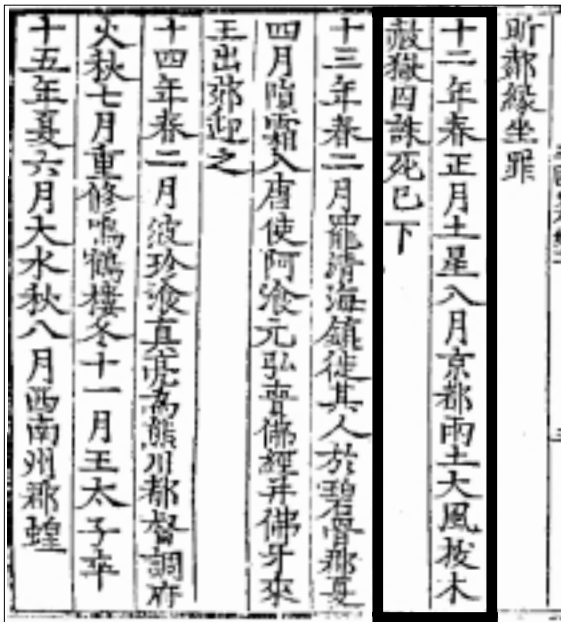 昕鄰緣坐罪
十二年春正月土星入月京都雨土大風拔木
赦獄囚誅死已下
十三年春二月罷清海鎮徙其人於碧骨郡夏
四月隕霜入唐使阿飡元弘賫佛經并佛牙來
王出郊迎之
十四年春二月波珍飡真亮為熊川都督調府
火秋七月重修鳴鶴樓冬十一月王太子卒
十五年夏六月大水秋八月西南州郡蝗